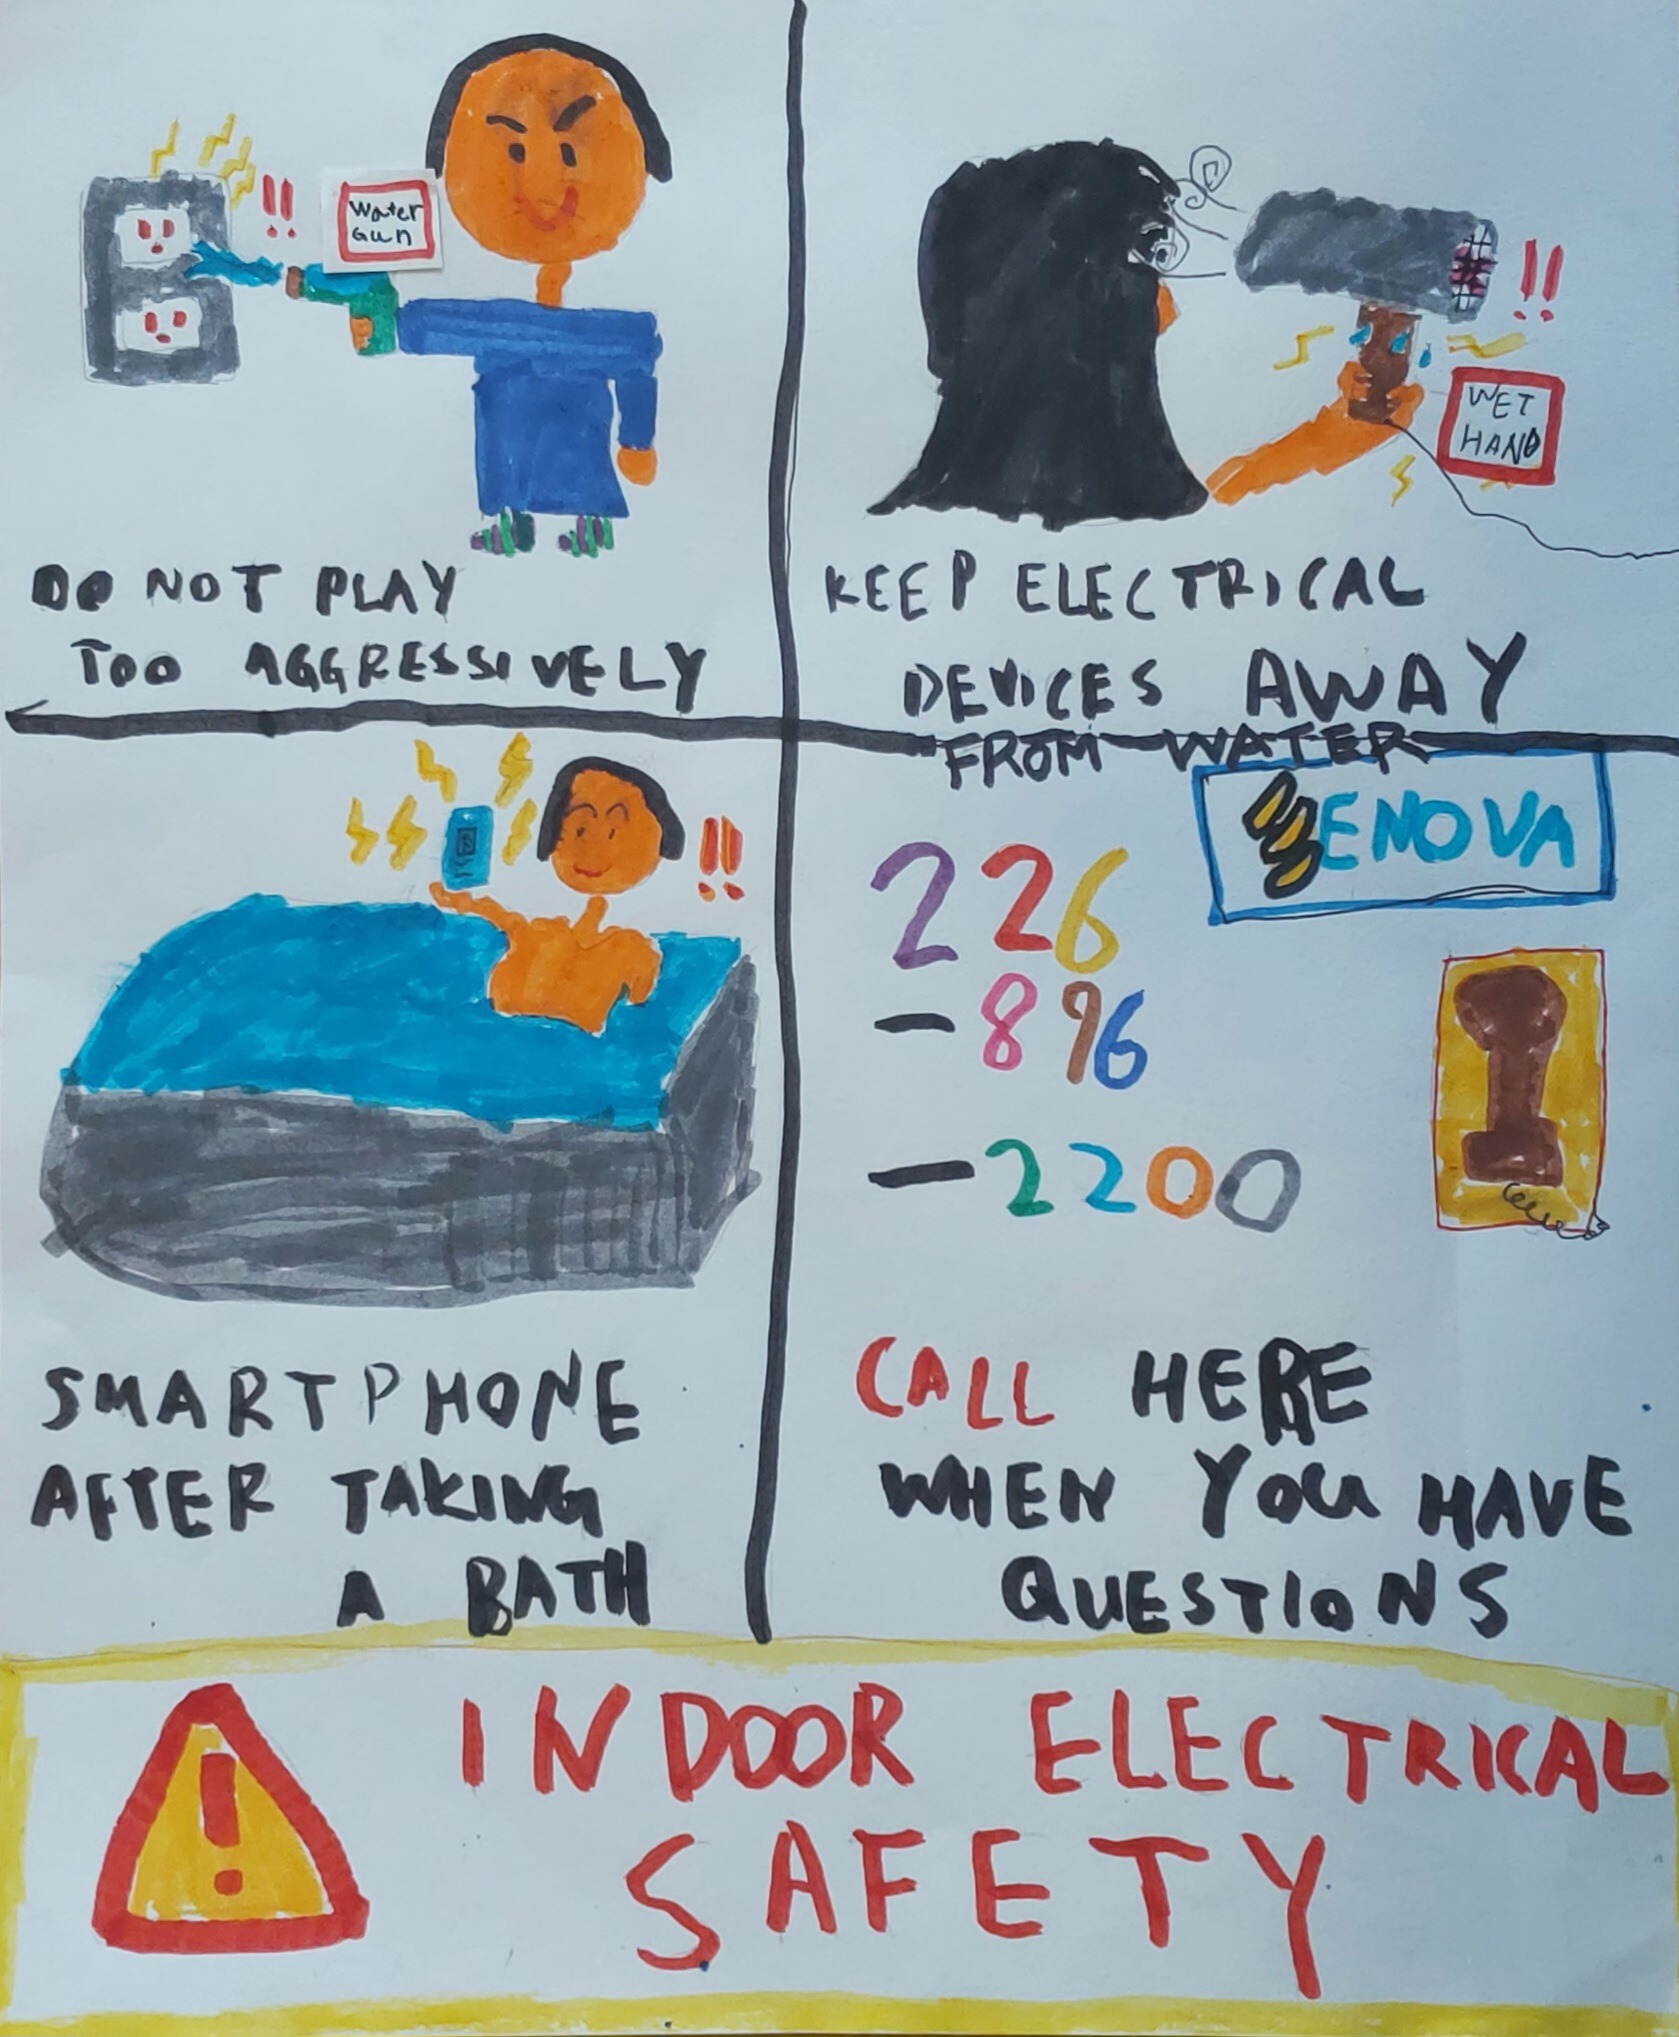 Water
Gun
!!
DO NOT PLAY
TOO AGGRESSIVELY
!!
WET
HAND
KEEP ELECTRICAL
DEVICES AWAY
FROM WATER
!!
SMARTPHONE
AFTER TAKING
A BATH
ENOVA
226
-896
-2200
CALL HERE
WHEN YOU HAVE
QUESTIONS
!
INDOOR ELECTRICAL
SAFETY